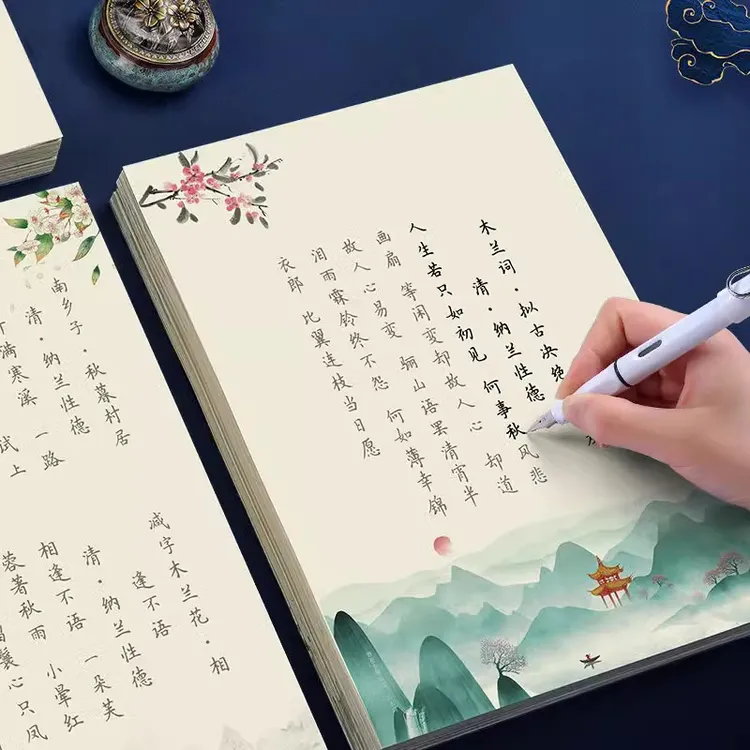 木兰词·拟古决绝
清·纳兰性德
人生若只如初见 何事秋风悲
画扇 等闲变却故人心 却道
故人心易变 骊山语罢清宵半
泪雨霖铃终不怨 何如薄幸锦
衣郎 比翼连枝当日愿
南乡子·秋暮村居
清·纳兰性德
满寒溪 一路
试上
减字木兰花·相
逢不语
清·纳兰性德
相逢不语 一朵芙
蓉著秋雨 小晕红
鬟心只凤